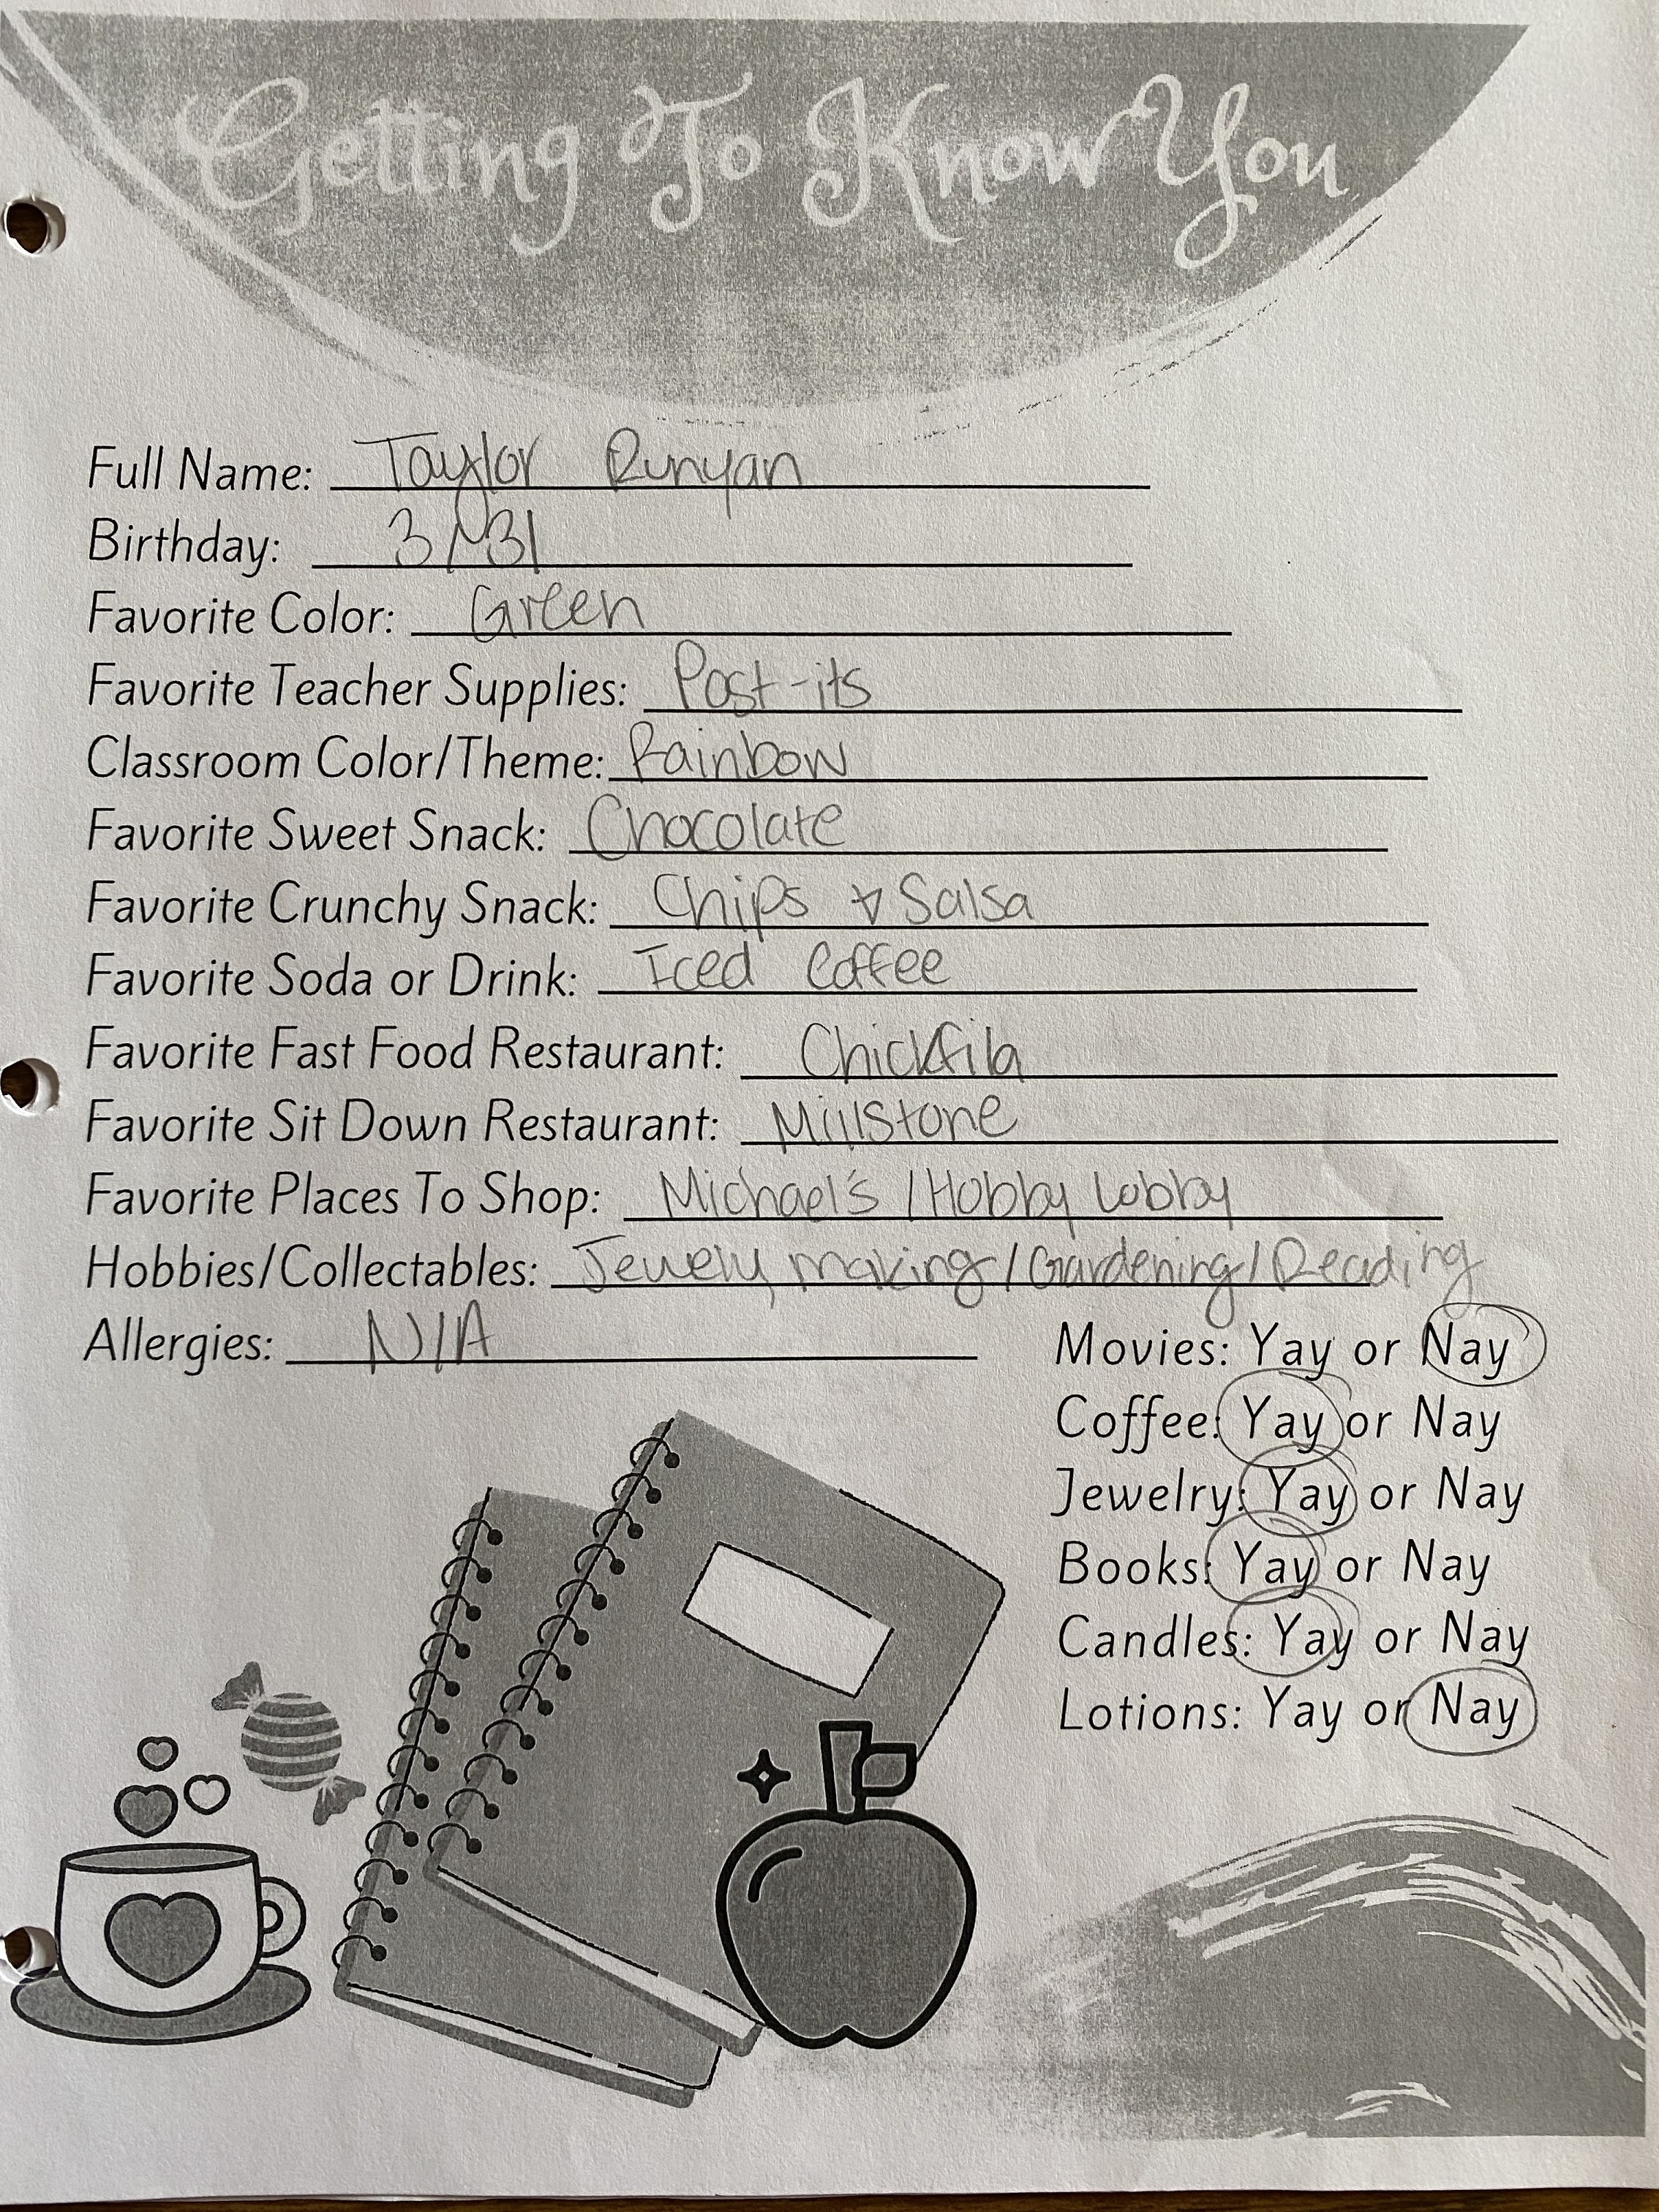 Getting To Know You
Full Name: Taylor Runyan
Birthday: 3/31
Favorite Color: Green
Favorite Teacher Supplies: Post-its
Classroom Color/Theme: Rainbow
Favorite Sweet Snack: Chocolate
Favorite Crunchy Snack: Chips & Salsa
Favorite Soda or Drink: Iced Coffee
Favorite Fast Food Restaurant: Chickfila
Favorite Sit Down Restaurant: Millstone
Favorite Places To Shop: Michael's / Hobby Lobby
Hobbies/Collectables: Jewely making / Gardening / Reading
Allergies: N/A
Movies: Yay or Nay
Coffee: Yay or Nay
Jewelry: Yay or Nay
Books: Yay or Nay
Candles: Yay or Nay
Lotions: Yay or Nay